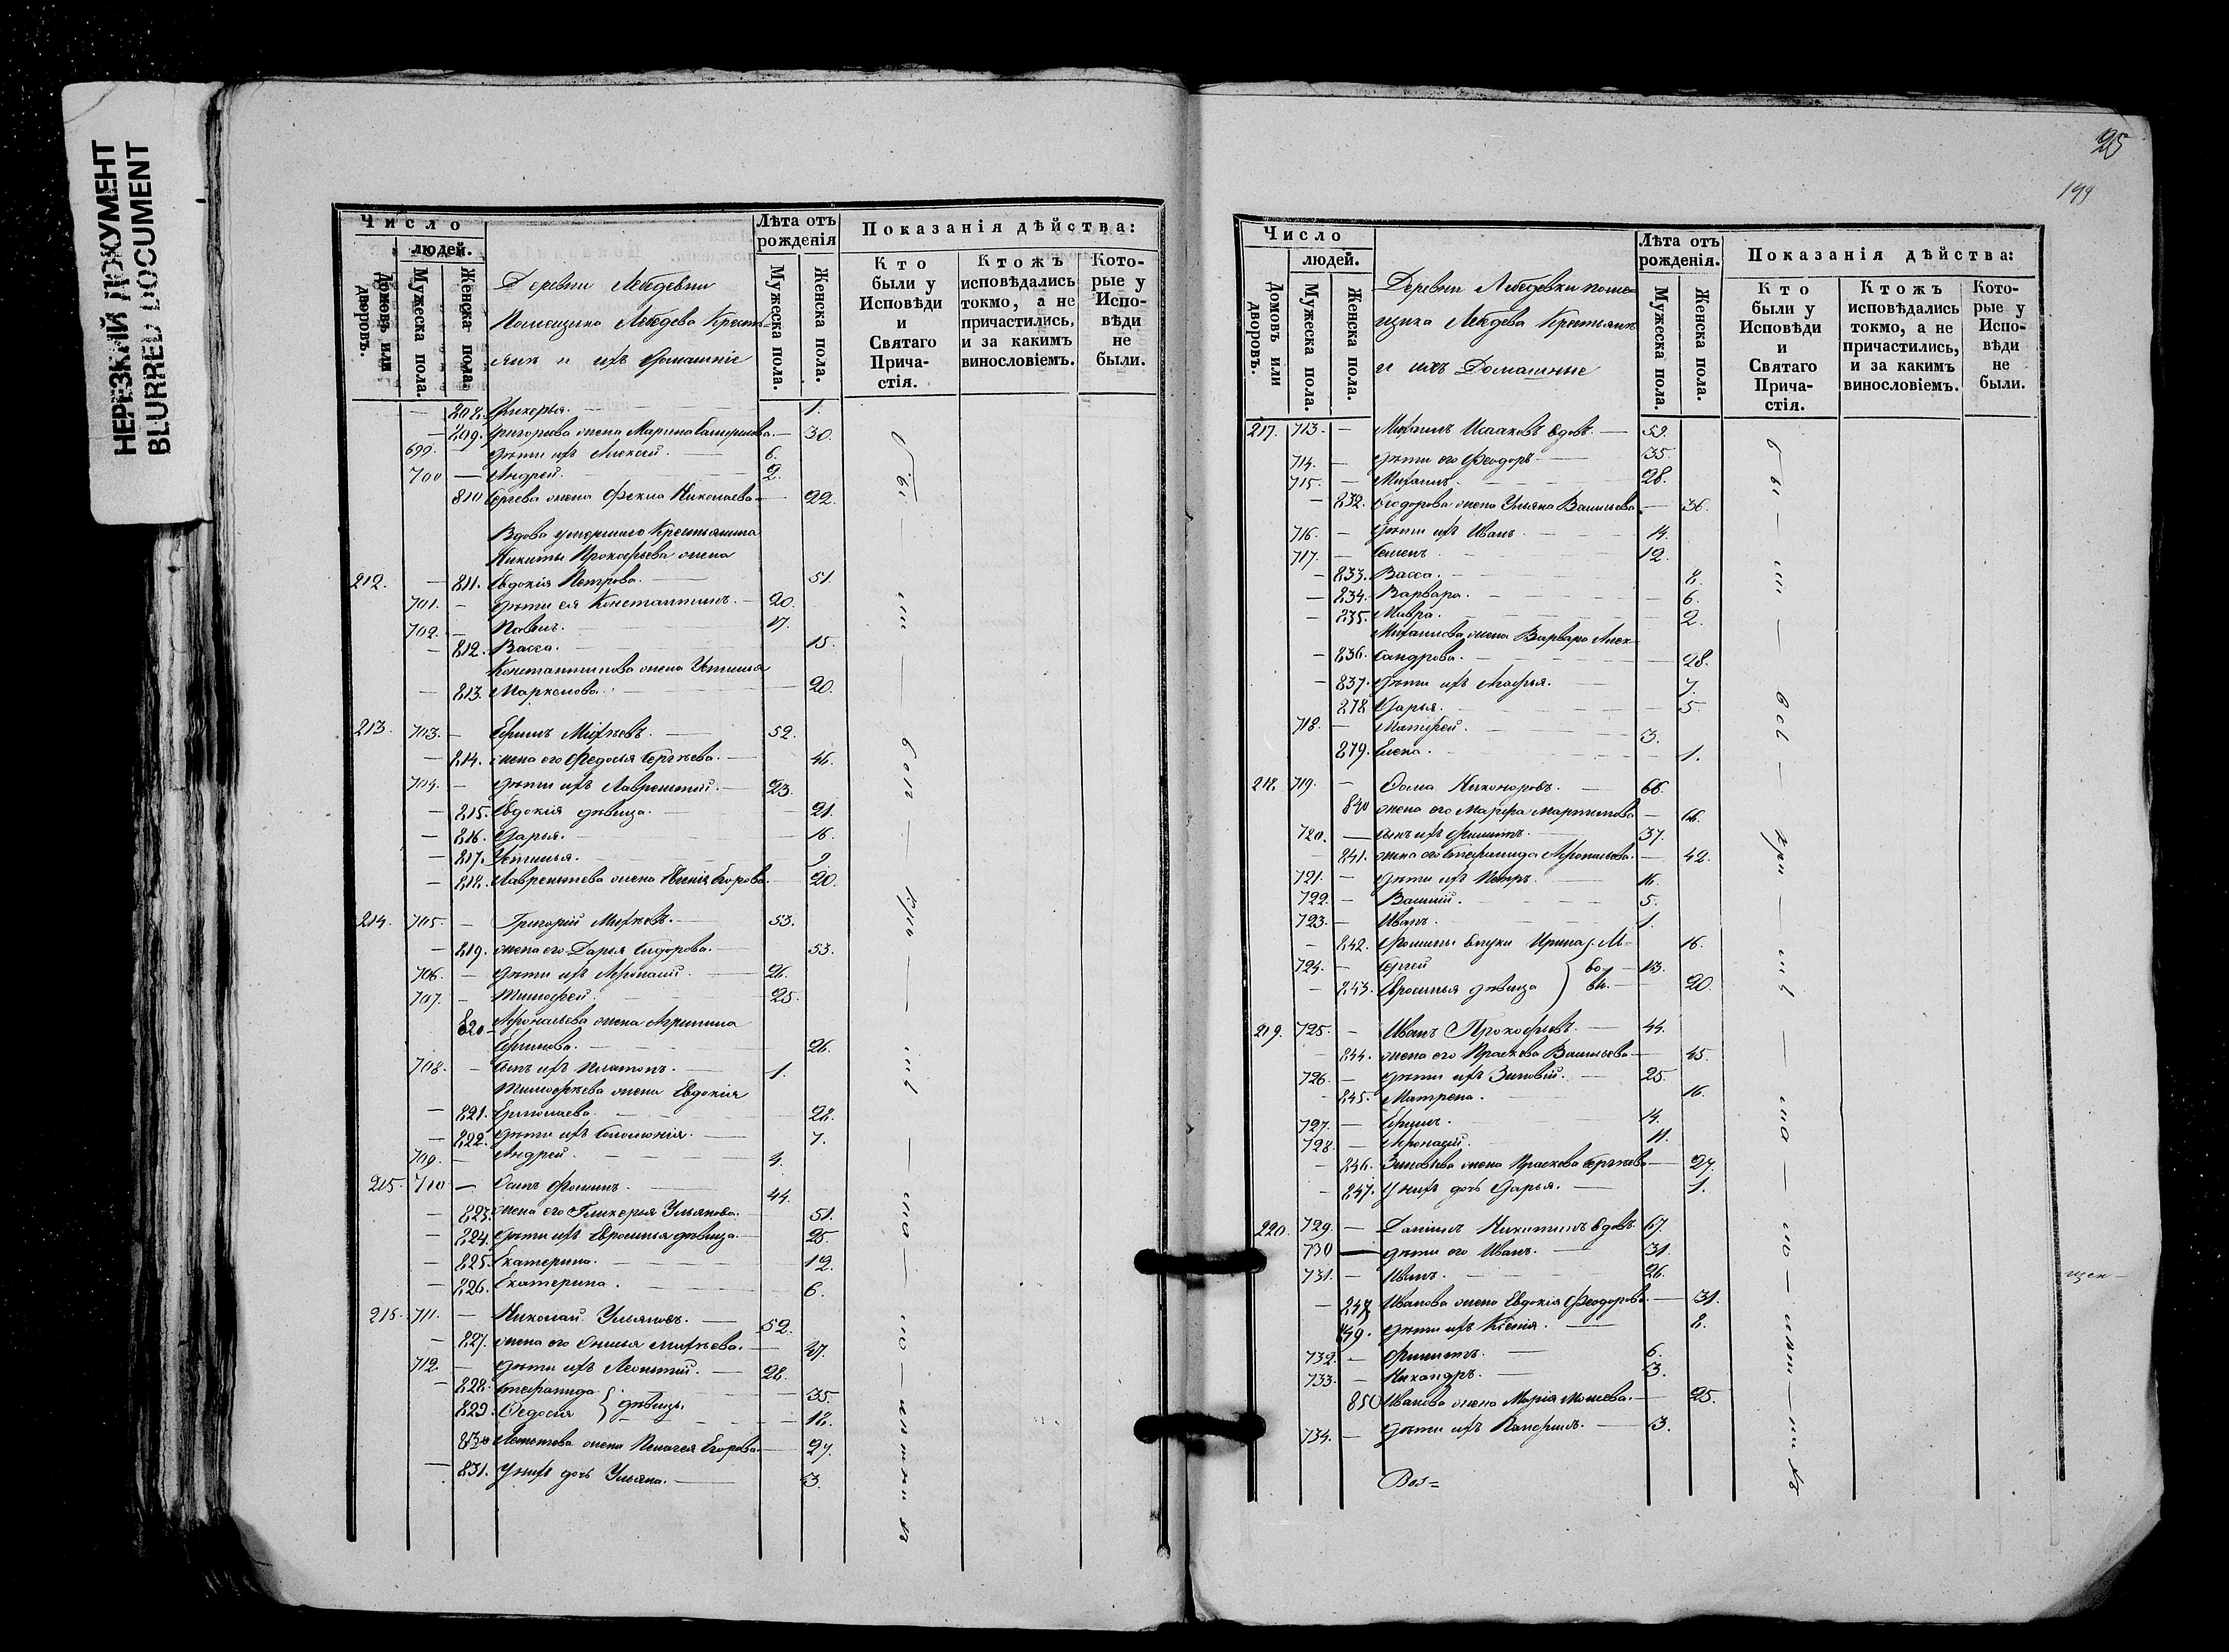 НЕРЕЗКИЙ ДОКУМЕНТ
BLURRED DOCUMENT
Число
людей.
Домовъ или дворовъ.
Мужеска пола.
Женска пола.
Деревни Лебедевки
Помещика Лебедева Кресть=
янъ и ихъ Домашніе
Лѣта отъ рожденія
Мужеска пола.
Женска пола.
Показанія дѣйства:
Кто были у Исповѣди и Святаго Причастія.
Ктожъ исповѣдались токмо, а не причастились, и за какимъ винословіемъ.
Кото-рые у Испо-вѣди не были.
— 808. Гликерья. 1.
— 809. Григорьева жена Марина 30.
699. — Дѣти ихъ Алексѣй. 6.
700 — Андрей. 2.
810 жена Фекла Николаева 22.
Вдова умершаго Крестьянина
Никиты Прокофьева жена
212. — 811. Евдокія Петрова. 51.
701. — Дѣти ея Константинъ. 20.
702. — Павелъ. 17.
— 812. Васса. 15.
Константинова жена Устинья
— 813. Маркелова. 20.
213. 703. — Ефимъ Михѣевъ. 52.
— 814. жена его Федосья Сергѣева. 46.
704. — Дѣти ихъ Лаврентій. 23.
— 815. Евдокія дѣвица. 21.
— 816. Дарья. 16.
— 817. Устинья. 9
— 818. Лаврентьева жена Егорова. 20.
214. 705. — Григорій Михѣевъ. 53.
— 819. жена его Дарья Сидорова. 53.
706. — Дѣти ихъ Афонасій. 26.
707. — Тимофей. 25.
820 Афонасьева жена Агрипина
26.
708. — Сынъ ихъ Платонъ. 1.
Тимофеева жена Евдокія
— 821. Ермолаева. 28.
— 822. Дѣти ихъ Соломонія. 7.
709. — Андрей. 4.
215. 710 — Осипъ Фоминъ. 44.
— 823. жена его Гликерья Ульянова. 51.
— 824. Дѣти ихъ Евросинья дѣвица. 25.
— 825. Екатерина. 12.
— 826. Екатерина. 6.
216. 711. — Николай Ульяновъ. 52.
— 827. жена его Михѣева. 47.
712. — Дѣти ихъ Леонтій. 28.
— 828. Стефанида } дѣвицы 35.
829. Федосія 18.
830 жена Пелагея Егорова. 27.
— 831. У нихъ дочь Ульяна. 3.
25
199
Число
людей.
Домовъ или дворовъ.
Мужеска пола.
Женска пола.
Деревни Лебедевки поме=
щика Лебедева Крестьянъ
и ихъ Домашніе
Лѣта отъ рожденія.
Мужеска пола.
Женска пола.
Показанія дѣйства:
Кто были у Исповѣди и Святаго Причастія.
Ктожъ исповѣдались токмо, а не причастились, и за какимъ винословіемъ.
Кото-рые у Испо-вѣди не были.
217. 713. — Михаилъ Исааковъ вдовъ. 59.
714. — Дѣти его Феодоръ. 35.
715. — Михаилъ. 28.
— 832. Феодорова жена Ульяна Васильева 36.
716. — Дѣти ихъ Иванъ. 14.
717. — Семенъ. 12.
— 833. Васса. 8.
— 834. Варвара. 6.
— 835. Мавра. 2.
Михаилова жена Варвара Алек-
— 836. сандрова. 28.
— 837. Дѣти ихъ Агафья. 7.
838 Дарья. 5.
718. — Матфей. 3.
839. Елена. 1.
218. 719. — Фома Никоноровъ. 66.
840 жена его Марфа Мартынова 66.
720. — Сынъ ихъ Филиппъ. 37.
— 841. жена его Стефанида Афонасьева. 42.
721. — Дѣти ихъ Петръ. 16.
722. — Василій. 5.
723. — Иванъ. 1.
— 842. Фомины внуки Ирина 16.
724. — Сергей 13.
— 843. Евросинья дѣвица 20.
219. 725. — Иванъ Прокофьевъ. 44.
— 844. жена его Праскева Васильева 45.
726. — Дѣти ихъ Зиновій. 25.
— 845. Матрена. 16.
727. — Ефимъ. 14.
728. — Афонасій. 11.
— 846. Зиновьева жена Праскева Сергѣева 27.
— 847. У нихъ дочь Дарья. 1.
220. 729. — Даніилъ Никитинъ вдовъ. 67.
730 — Дѣти его Иванъ. 31.
731. — Иванъ. 26.
— 848 Иванова жена Евдокія Феодорова. 31.
849. Дѣти ихъ Ксенія. 8.
732. — Филиппъ. 6.
733. — Никандръ. 3.
850 Иванова жена Марія 25.
734. — Дѣти ихъ Панфилъ. 3.